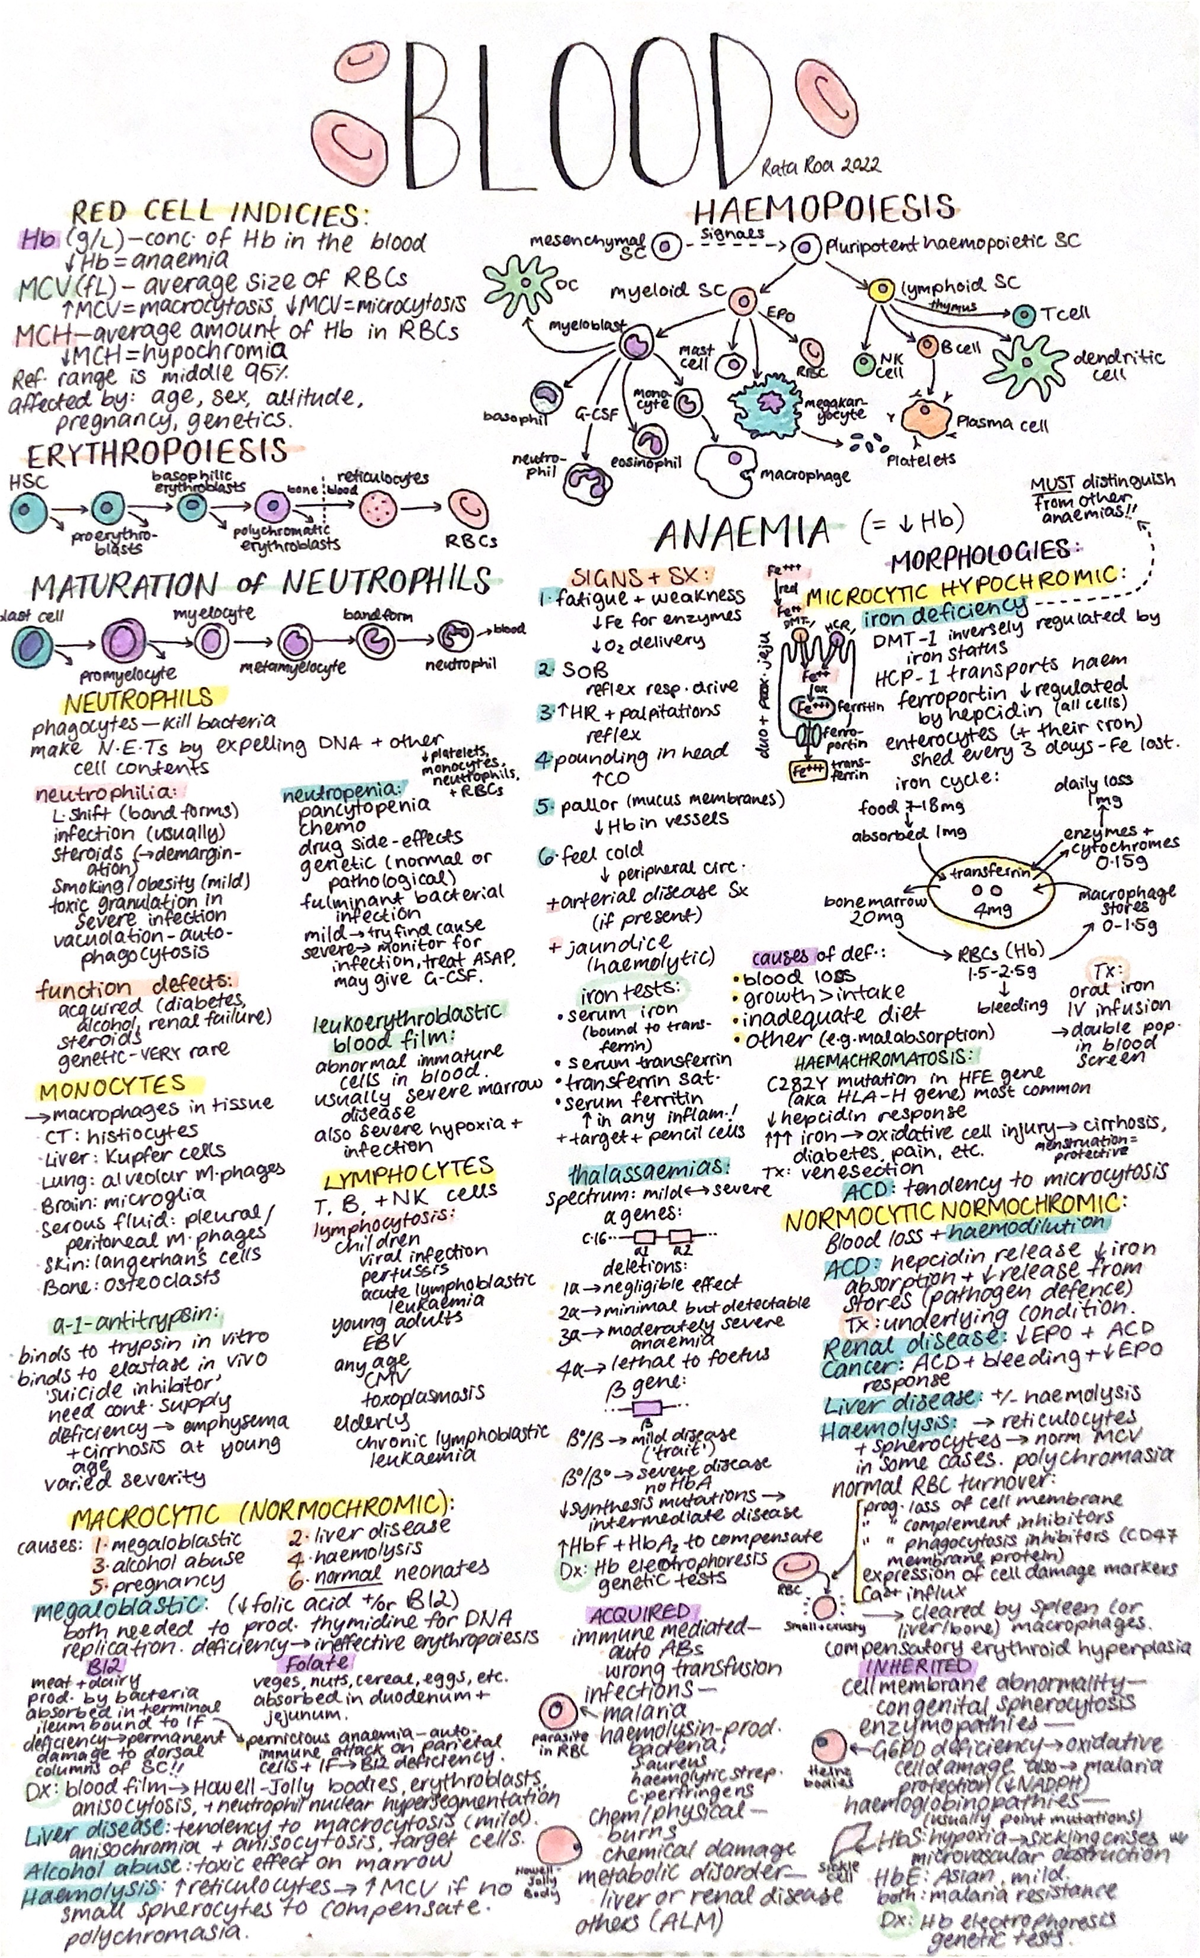 BLOOD
Rata Roa 2022
RED CELL INDICIES:
Hb (g/L) – conc. of Hb in the blood
↓Hb = anaemia
MCV (fL) – average size of RBCs
↑MCV = macrocytosis ↓MCV = microcytosis
MCH – average amount of Hb in RBCs
↓MCH = hypochromia
Ref. range is middle 95%
affected by: age, sex, altitude,
pregnancy, genetics.
ERYTHROPOIESIS
HSC
proerythro-
blasts
basophilic
erythroblasts
polychromatic
erythroblasts
bone blood
reticulocytes
RBCs
MATURATION of NEUTROPHILS
blast cell
promyelocyte
myelocyte
metamyelocyte
band form
neutrophil
→blood
HAEMOPOIESIS
mesenchymal
SC
signals
pluripotent haemopoietic SC
DC
myeloid SC
lymphoid SC
thymus
T cell
EPO
myeloblast
mast
cell
RBC
NK
cell
B cell
dendritic
cell
basophil
G-CSF
mono-
cyte
megakar-
yocyte
Plasma cell
neutro-
phil
eosinophil
macrophage
Platelets
NEUTROPHILS
phagocytes – kill bacteria
make N.E.Ts by expelling DNA + other
cell contents
neutrophilia:
L. Shift (band forms)
infection (usually)
steroids (→demargin-
ation)
Smoking/obesity (mild)
toxic granulation in
severe infection
vacuolation – auto-
phagocytosis
function defects:
acquired (diabetes,
alcohol, renal failure)
steroids
genetic – VERY rare
neutropenia:
↓platelets,
monocytes,
neutrophils,
+ RBCs
pancytopenia
chemo
drug side-effects
genetic (normal or
pathological)
fulminant bacterial
infection
mild → try find cause
severe → monitor for
infection, treat ASAP,
may give G-CSF.
leukoerythroblastic
blood film:
abnormal immature
cells in blood.
usually severe marrow
disease
also severe hypoxia +
infection
MONOCYTES
→macrophages in tissue
· CT: histiocytes
· Liver: Kupfer cells
· Lung: alveolar m·phages
· Brain: microglia
· Serous fluid: pleural/
peritoneal m·phages
· Skin: langerhan's cells
· Bone: osteoclasts
a-1-antitrypsin:
· binds to trypsin in vitro
· binds to elastase in vivo
'suicide inhibitor'
need cont. supply
deficiency → emphysema
+ cirrhosis at young
age
varied severity
LYMPHOCYTES
T, B, + NK cells
lymphocytosis:
children
viral infection
pertussis
acute lymphoblastic
leukaemia
young adults
EBV
any age
CMV
toxoplasmosis
elderly
chronic lymphoblastic
leukaemia
MACROCYTIC (NORMOCHROMIC):
causes: 1. megaloblastic 2. liver disease
3. alcohol abuse 4. haemolysis
5. pregnancy 6. normal neonates
megaloblastic: (↓folic acid +/or B12)
both needed to prod. thymidine for DNA
replication. deficiency → ineffective erythropoiesis
B12
meat + dairy
prod. by bacteria
absorbed in terminal
ileum bound to IF
deficiency → permanent
damage to dorsal
columns of SC!!
Folate
veges, nuts, cereal, eggs, etc.
absorbed in duodenum +
jejunum.
pernicious anaemia – auto-
immune attack on parietal
cells + IF → B12 deficiency.
Dx: blood film → Howell-Jolly bodies, erythroblasts,
anisocytosis, + neutrophil nuclear hypersegmentation
Liver disease: tendency to macrocytosis (mild).
anisochromia + anisocytosis, target cells.
Alcohol abuse: toxic effect on marrow
Haemolysis: ↑reticulocytes → ↑MCV if no
small spherocytes to compensate.
polychromasia.
ANAEMIA (= ↓Hb)
SIGNS + SX:
1. fatigue + weakness
↓Fe for enzymes
↓O2 delivery
2. SOB
reflex resp. drive
3. ↑HR + palpitations
reflex
4. pounding in head
↑CO
5. pallor (mucus membranes)
↓Hb in vessels
6. feel cold
↓ peripheral circ.
+ arterial disease Sx
(if present)
+ jaundice
(haemolytic)
iron tests:
• serum iron
(bound to trans-
ferrin)
• serum transferrin
• transferrin sat.
• serum ferritin
↑ in any inflam.!
+ target + pencil cells
thalassaemias:
spectrum: mild ↔ severe
α genes:
C·16
α1 α2
deletions:
1a → negligible effect
2a → minimal but detectable
3a → moderately severe
anaemia
4a → lethal to foetus
β gene:
β
β°/β → mild disease
('trait')
β°/β° → severe disease
no HbA
↓synthesis mutations →
intermediate disease
↑HbF + HbA2 to compensate
Dx: Hb electrophoresis
genetic tests
MUST distinguish
from other
anaemias!!
MORPHOLOGIES:
MICROCYTIC HYPOCHROMIC:
iron deficiency
DMT-1 inversely regulated by
iron status
HCP-1 transports haem
ferroportin ↓regulated
by hepcidin (all cells)
enterocytes (+ their iron)
shed every 3 days – Fe lost.
Fe+++
red
Fe++
DMT-1
HCP,
Fe++
ox
Fe+++
ferritin
ferro-
portin
Fe+++
trans-
ferrin
duo + prox. jeju
iron cycle:
food 7-18mg
absorbed 1mg
daily loss
1mg
enzymes +
cytochromes
0·15g
transferrin
4mg
bone marrow
20mg
macrophage
stores
0-1·5g
RBCs (Hb)
1·5-2·5g
bleeding
Tx:
oral iron
IV infusion
→double pop.
in blood
screen
causes of def.:
• blood loss
• growth > intake
• inadequate diet
• other (e.g. malabsorption)
HAEMACHROMATOSIS:
C282Y mutation in HFE gene
(aka HLA-H gene) most common
↓hepcidin response
↑↑↑ iron → oxidative cell injury → cirrhosis,
diabetes, pain, etc.
menstruation =
protective
Tx: venesection
ACD: tendency to microcytosis
NORMOCYTIC NORMOCHROMIC:
Blood loss + haemodilution
ACD: hepcidin release ↓iron
absorption + ↓release from
stores (pathogen defence)
Tx: underlying condition.
Renal disease: ↓EPO + ACD
Cancer: ACD + bleeding + ↓EPO
response
Liver disease: +/- haemolysis
Haemolysis: → reticulocytes
+ spherocytes → norm MCV
in some cases. polychromasia
normal RBC turnover:
prog. loss of cell membrane
" " complement inhibitors
" " phagocytosis inhibitors (CD47
membrane protein)
expression of cell damage markers
Ca2+ influx
RBC
small + crusty
→ cleared by spleen (or
liver/bone) macrophages.
compensatory erythroid hyperplasia
ACQUIRED
immune mediated –
auto ABs
wrong transfusion
infections –
malaria
haemolysin-prod.
bacteria;
S·aureus
haemolytic strep.
C·perfringens
chem/physical –
burns
chemical damage
metabolic disorder –
liver or renal disease
others (ALM)
parasite
in RBC
Howell-
Jolly
Body
INHERITED
cell membrane abnormality –
congenital spherocytosis
enzymopathies –
G6PD deficiency → oxidative
cell damage, also → malaria
protection (↓NADPH)
haemoglobinopathies –
(usually point mutations)
HbS: hypoxia → sickling crises w
microvascular obstruction
HbE: Asian, mild.
both: malaria resistance
Dx: Hb electrophoresis
genetic tests.
Heinz
bodies
Sickle
cell